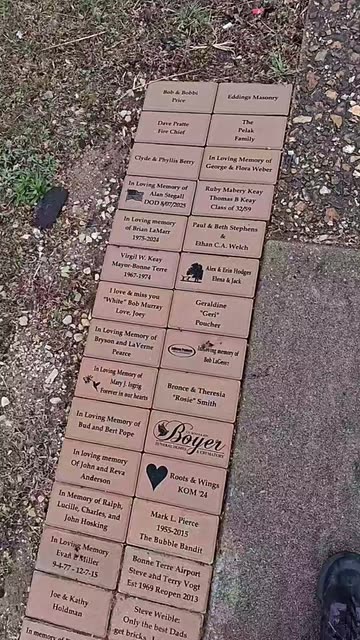 Bob & Bobbi
Price
Eddings Masonry
Dave Pratte
Fire Chief
The
Pelak
Family
Clyde & Phyllis Berry
In Loving Memory of
George & Flora Weber
In Loving Memory of
Alan Stegall
DOD
Ruby Mabery Keay
Thomas B Keay
Class of 32/59
In Loving memory
of Brian LaMarr
1975-2024
Paul & Beth Stephens
&
Ethan C.A. Welch
Virgil W. Keay
Mayor-Bonne Terre
1967-1974
Alex & Erin Hodges
Elena & Jack
I love & miss you
"White" Bob Murray
Love, Joey
Geraldine
"Geri"
Poucher
In Loving Memory of
Bryson and LaVerne
Pearce
In Loving memory of
Bob
In Loving Memory of
Mary J.
Forever in our hearts
Bronce & Theresia
"Rosie" Smith
In Loving Memory of
Bud and Bert Pope
Boyer
In loving memory
Of John and Reva
Anderson
Roots & Wings
KOM '24
In Memory of Ralph,
Lucille, Charles, and
John Hosking
Mark L. Pierce
1955-2015
The Bubble Bandit
In Loving Memory
Evan Miller
9-4-77 - 12-7-15
Bonne Terre Airport
Steve and Terry Vogt
Est 1969 Reopen 2013
Joe & Kathy
Holdman
Steve Weible:
Only the best Dads
get bricks
In memory of